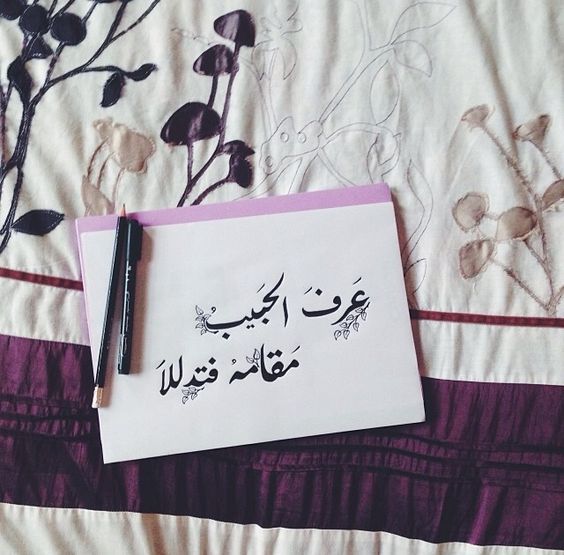 عَرفَ الحَبيبُ
مَقامهُ فتدللاَ